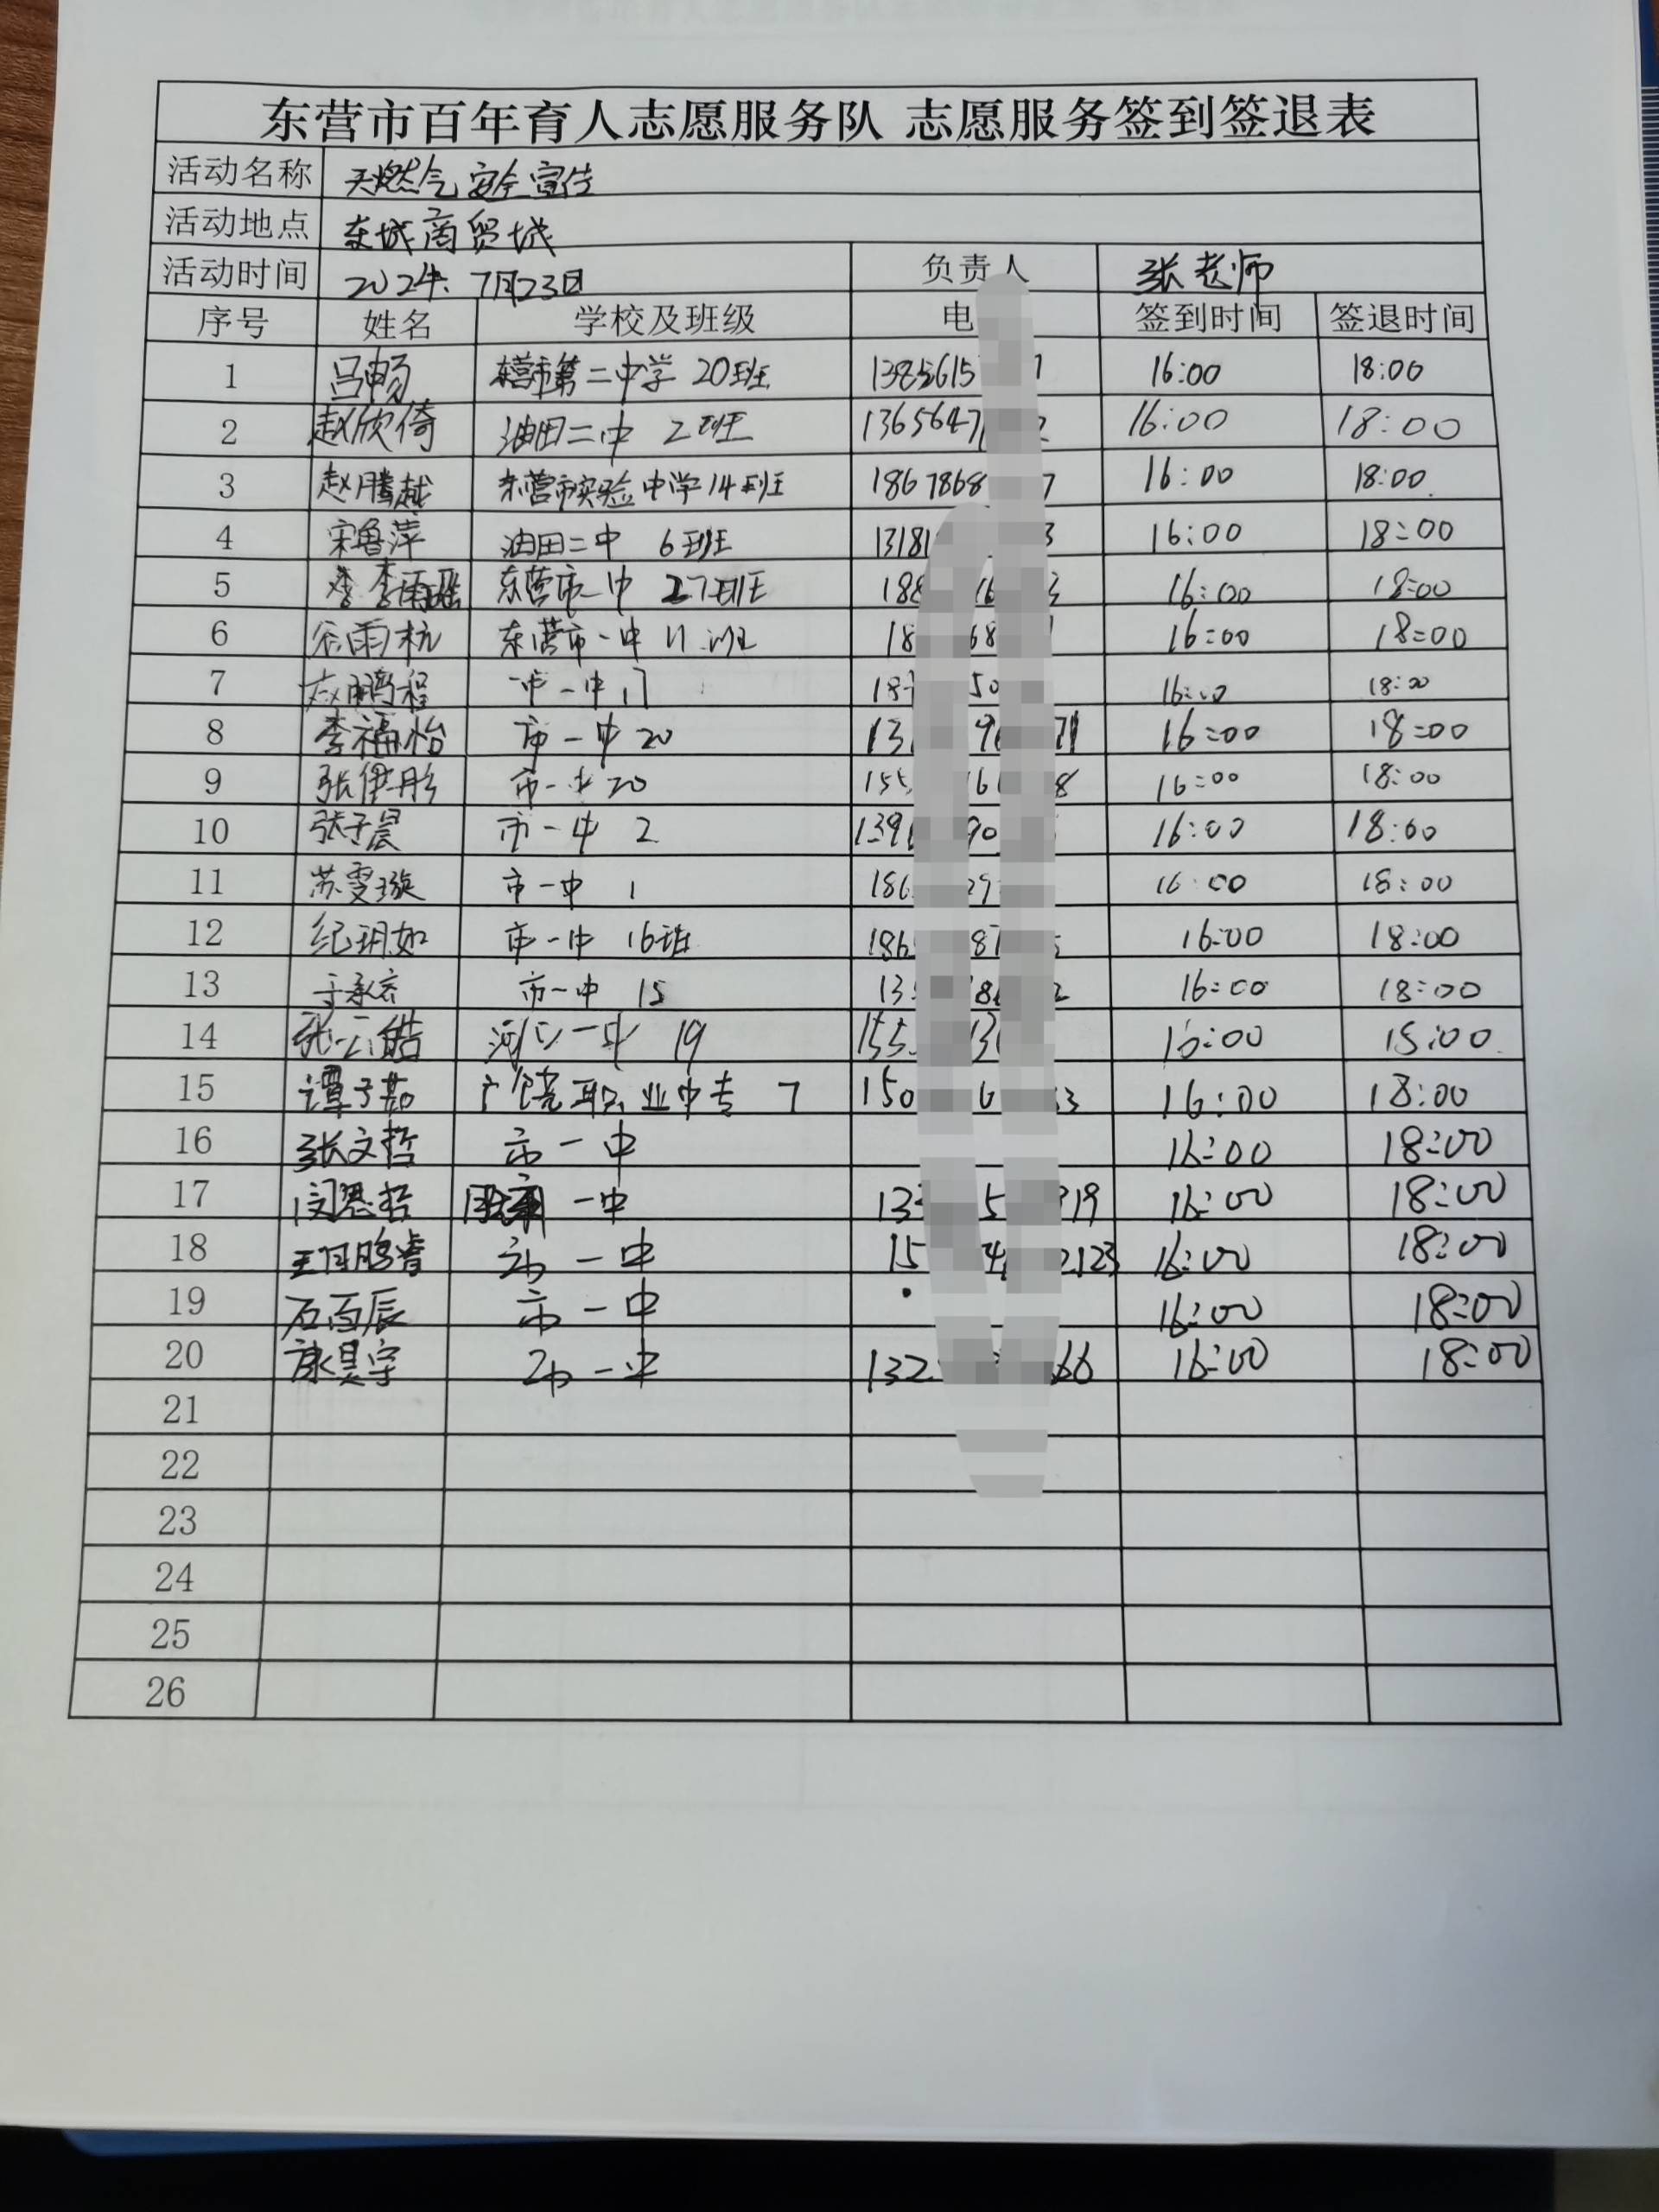 东营市百年育人志愿服务队 志愿服务签到签退表
活动名称 天燃气安全宣传
活动地点 东城商贸城
活动时间 2024年 7月23日 负责人 张老师
序号 姓名 学校及班级 电 签到时间 签退时间
1 吕畅 东营市第二中学 20班 1385615 1 16:00 18:00
2 赵欣倚 油田二中 2班 1365647 2 16:00 18:00
3 赵腾越 东营市实验中学14班 1867868 7 16:00 18:00
4 宋鲁萍 油田二中 6班 13181 3 16:00 18:00
5 李雨瑶 东营市一中 27班 188 16 3 16:00 18:00
6 谷雨杭 东营市一中 11班 18 68 16:00 18:00
7 赵鹏程 市一中 17 187 50 16:00 18:00
8 李福怡 市一中 20 13 9 71 16:00 18:00
9 张伊彤 市一中 20 155 16 8 16:00 18:00
10 张子晨 市一中 2 139 90 16:00 18:00
11 苏雯璇 市一中 1 186 29 16:00 18:00
12 纪玥如 市一中 16班 186 87 5 16:00 18:00
13 于承 市一中 15 13 18 2 16:00 18:00
14 张云皓 河口一中 19 155 13 16:00 15:00
15 谭子茹 广饶职业中专 7 150 6 3 16:00 18:00
16 张文哲 市一中 16:00 18:00
17 闫思哲 一中 133 5 919 16:00 18:00
18 王鹏睿 市一中 15 4 2123 16:00 18:00
19 石百辰 市一中 16:00 18:00
20 康昊宇 市一中 132 66 16:00 18:00
21
22
23
24
25
26